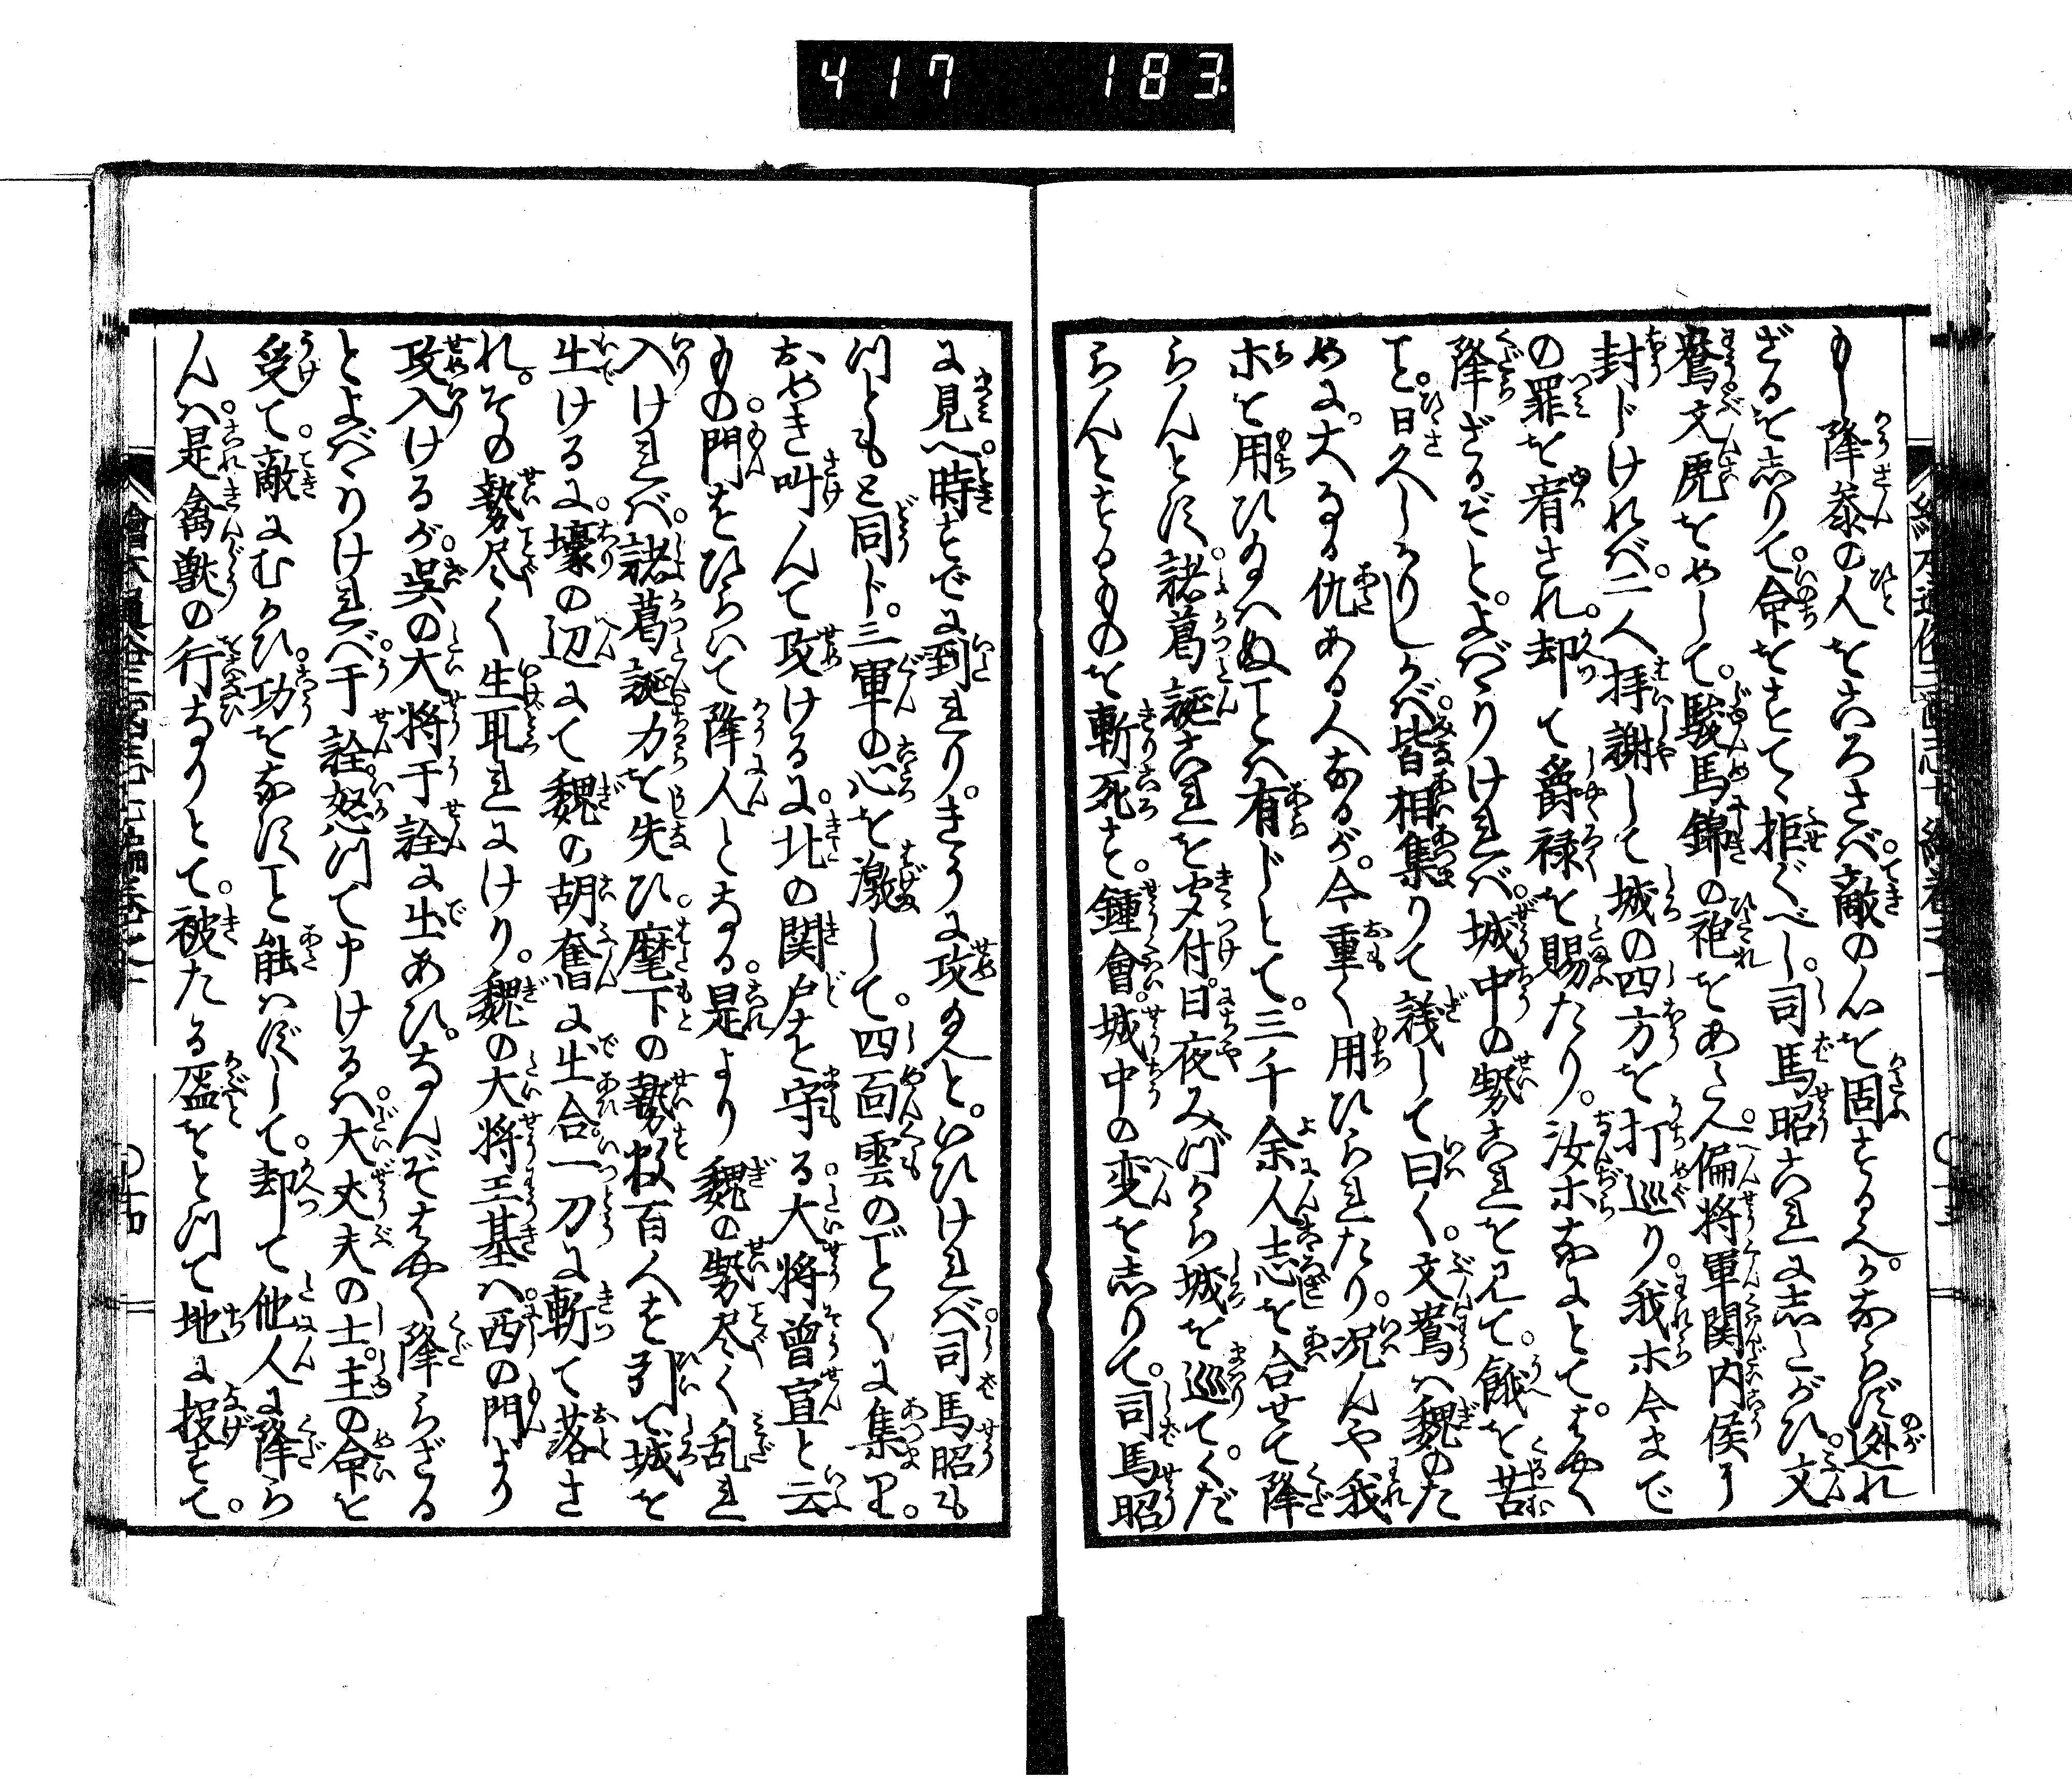 417 183
もし降参の人をころさば。敵の心を固するヘ。かならず迯れ
ざるを志りて。命をすてゝ拒ぐべし。司馬昭これに志たがひ。文
鴦文虎をめして。駿馬錦の袍をあたへ。偏将軍関内侯に
封じければ。二人拝謝して城の四方を打巡り。我ホ今まで
の罪を宥され。却て爵禄を賜たり。汝ホなにとて。はやく
降ざるぞと。よばゝりければ。城中の勢これを見て。餓を苦
て。日久しかりしかば。皆相集りて議して曰く。文鴦ハ魏のた
めに。大なる仇ある人なるが。今重く用ひられたり。况んや我
ホを用ひ給ハぬヿハ有じとて。三千余人志を合せて降
らんとす。諸葛誕これを聞付。日夜みづから城を巡て。くだ
らんとするものを斬死す。鍾會。城中の変を志りて。司馬昭
に見へ。時すでに到れり。きうに攻給へと。いひければ。司馬昭も
つともと同じ。三軍の心を激して。四面雲のごとくに集り。
おめき叫んて攻けるに。北の関戸を守る大将曽宣と云
もの。門をひらいて降人となる。是より魏の勢尽く乱れ
入ければ。諸葛誕力を失ひ。麾下の勢数百人を引て城を
出けるに。壕の辺にて魏の胡奮に出合。一刀に斬て落さ
れ。その勢尽く生耻れにけり。魏の大将王基ハ。西の門より
攻入けるが。呉の大将于詮に出あひ。なんぞはやく降らざる
とよばゝりければ。于詮怒つて申けるハ。大丈夫の士。主の命を
受て。敵にむかひ。功をなすヿ能ハずして。却て他人に降ら
んハ。是禽獣の行なりとて。被たる盔をとつて地に投すて。